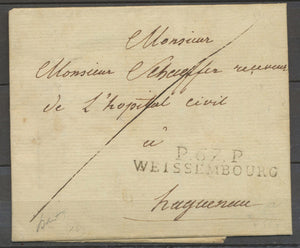 Monsieur
Monsieur Schæffer receveur
de L'hopital civil
à
P.67.P
WEISSEMBOURG
haguenau